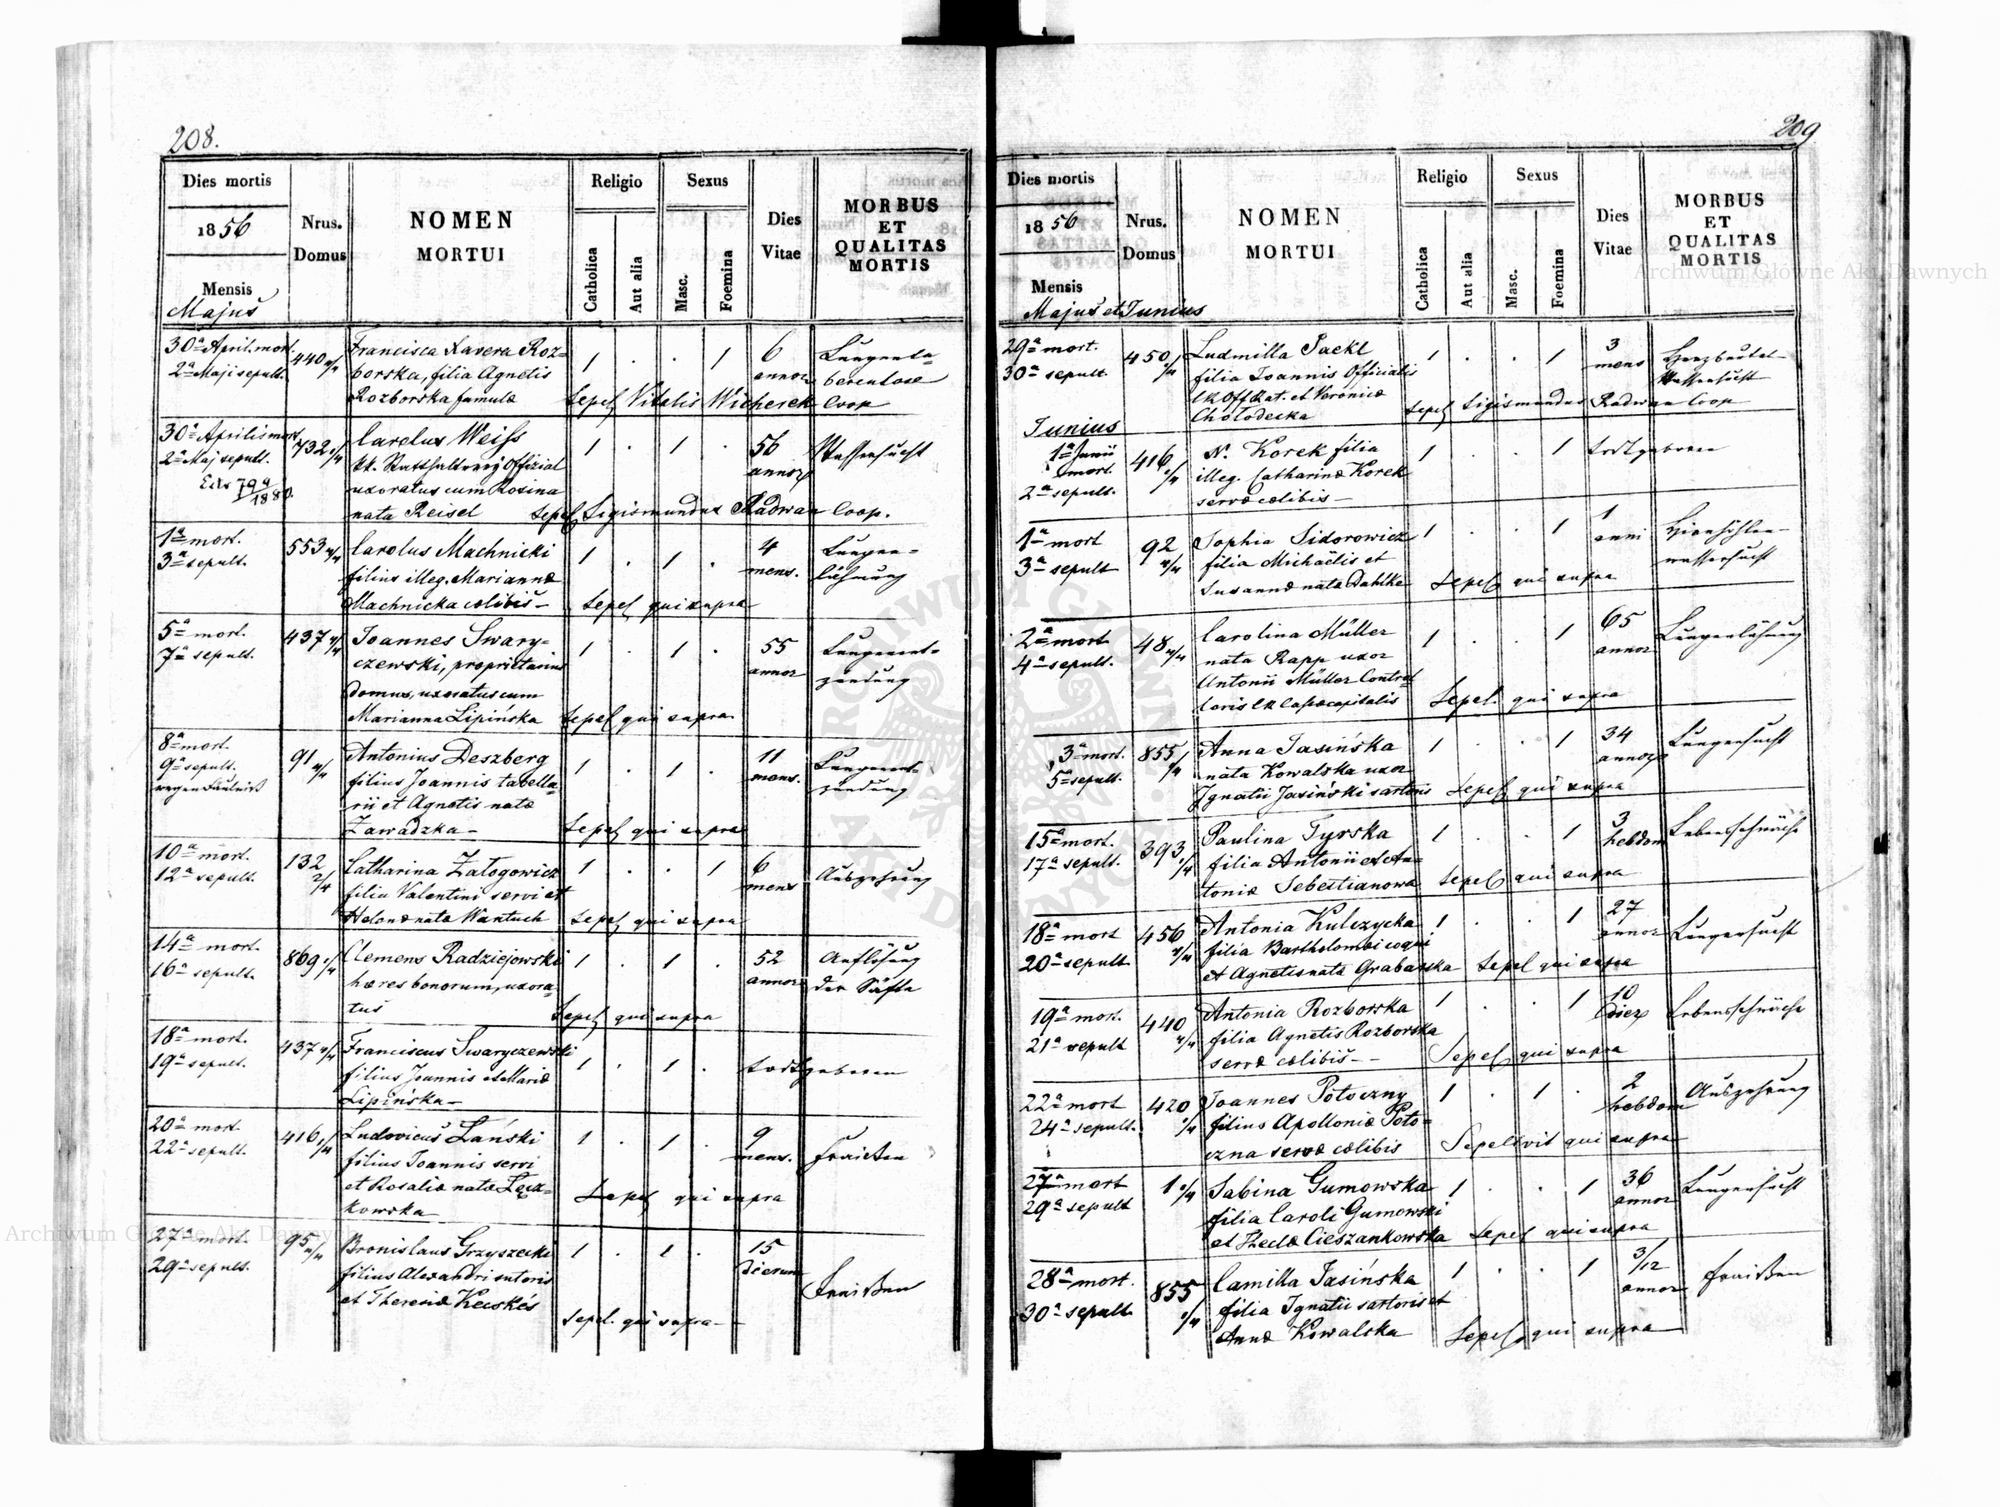 208.
Dies mortis
1856
Mensis
Majus
Nrus.
Domus
NOMEN
MORTUI
Religio
Catholica
Aut alia
Sexus
Masc.
Foemina
Dies
Vitae
MORBUS
ET
QUALITAS
MORTIS
30a April. mort.
2a Maji sepult.
440
Francisca Xavera Roz=
borska, filia Agnetis
Rozborska famulæ
1 . . 1
6
annor
Lungentu=
berculose
Sepel Vitalis Wicherek Coop
30a Aprilis mort
2a Maj sepult.
732
Carolus Weiss
kk. Statthalterey Offizial
uxoratus cum Rosina
nata Reisel
1 . 1 .
56
annor
Wassersucht
Sepel Sigismundus Radwan Coop.
1a mort.
3a sepult.
553
Carolus Machnicki
filius illeg. Mariannæ
Machnicka cælibis
1 . 1 .
4
mens.
Lungen=
lähmung
Sepel qui supra
5a mort.
7a sepult.
437
Joannes Swary=
czewski, proprietarius
domus, uxoratus cum
Marianna Lipińska
1 . 1 .
55
annor
Lungenent=
zündung
Sepel qui supra
8a mort.
9a sepult.
wegen Fäulniß
91
Antonius Deszberg
filius Joannis tabella=
rii et Agnetis natæ
Zawadzka
1 . 1 .
11
mens.
Lungenent=
zündung
Sepel qui supra
10a mort.
12a sepult.
132
Catharina Zatogowicz
filia Valentini servi et
Helenæ nata Wantuch
1 . . 1
6
mens
Auszehrung
Sepel qui supra
14a mort.
16a sepult.
869
Clemens Radziejowski
hæres bonorum, uxora=
tus
1 . 1 .
52
annor
Auflösung
der Säfte
Sepel qui supra
18a mort.
19a sepult.
437
Franciscus Swaryczewski
filius Joannis et Mariæ
Lipińska
1 . 1 .
todtgeboren
20a mort.
22a sepult.
416
Ludovicus Łański
filius Joannis servi
et Rosaliæ natæ Łęcz=
kowska
1 . 1 .
9
mens.
Fraisen
Sepel qui supra
27a mort.
29a sepult.
95
Bronislaus Grzyszecki
filius Alexandri sutoris
et Theresiæ Kecskés
1 . 1 .
15
dierum
Fraisen
Sepel. qui supra
209
Dies mortis
1856
Mensis
Majus et Junius
Nrus.
Domus
NOMEN
MORTUI
Religio
Catholica
Aut alia
Sexus
Masc.
Foemina
Dies
Vitae
MORBUS
ET
QUALITAS
MORTIS
29a mort.
30a sepult.
450
Ludmilla Jaekl
filia Joannis Officialis
et Veronicæ
Chołodecka
1 . . 1
3
mens
Herzbeutel=
Wassersucht
Sepel Sigismundus Radwan Coop
Junius
1a Junii
mort.
2a sepult.
416
N. Korek filia
illeg. Catharinæ Korek
servæ cælibis
1 . . 1
todtgeboren
1a mort
3a sepult
92
Sophia Sidorowicz
filia Michaëlis et
Susannæ nata Dahlke
1 . . 1
1
anni
Hirnhöhlen=
wassersucht
Sepel qui supra
2a mort
4a sepult.
48
Carolina Müller
nata Rapp uxor
Antonii Müller Control
loris
1 . . 1
65
annor
Lungenlähmung
Sepel. qui supra
3a mort.
5a sepult.
855
Anna Jasińska
nata Kowalska uxor
Ignatii Jasiński sartoris
1 . . 1
34
annor
Lungensucht
Sepel qui supra
15a mort.
17a sepult.
393
Paulina Tyrska
filia Antonii et An=
toniæ Sebestianowa
1 . . 1
3
hebdom
Lebensschwäche
Sepel qui supra
18a mort
20a sepult
456
Antonia Kulczycka
filia Bartholomæi coqui
et Agnetis nata Grabarska
1 . . 1
27
annor
Lungensucht
Sepel qui supra
19a mort.
21a sepult
440
Antonia Rozborska
filia Agnetis Rozborska
servæ cælibis
1 . . 1
10
dier
Lebensschwäche
Sepel qui supra
22a mort
24a sepult.
420
Joannes Potoczny
filius Apolloniæ Poto=
czna servæ cælibis
1 . 1 .
2
hebdom
Auszehrung
Sepelivit qui supra
27a mort
29a sepult
1
Sabina Gumowska
filia Caroli Gumowski
et Theclæ Cieszankowska
1 . . 1
36
annor
Lungensucht
Sepel qui supra
28a mort.
30a sepult.
855
Camilla Jasińska
filia Ignatii sartoris et
Annæ Kowalska
1 . . 1
3/12
annor
Fraisen
Sepel qui supra
Archiwum Główne Akt Dawnych
Archiwum Główne Akt Dawnych
ARCHIWUM GŁÓWNE AKT DAWNYCH